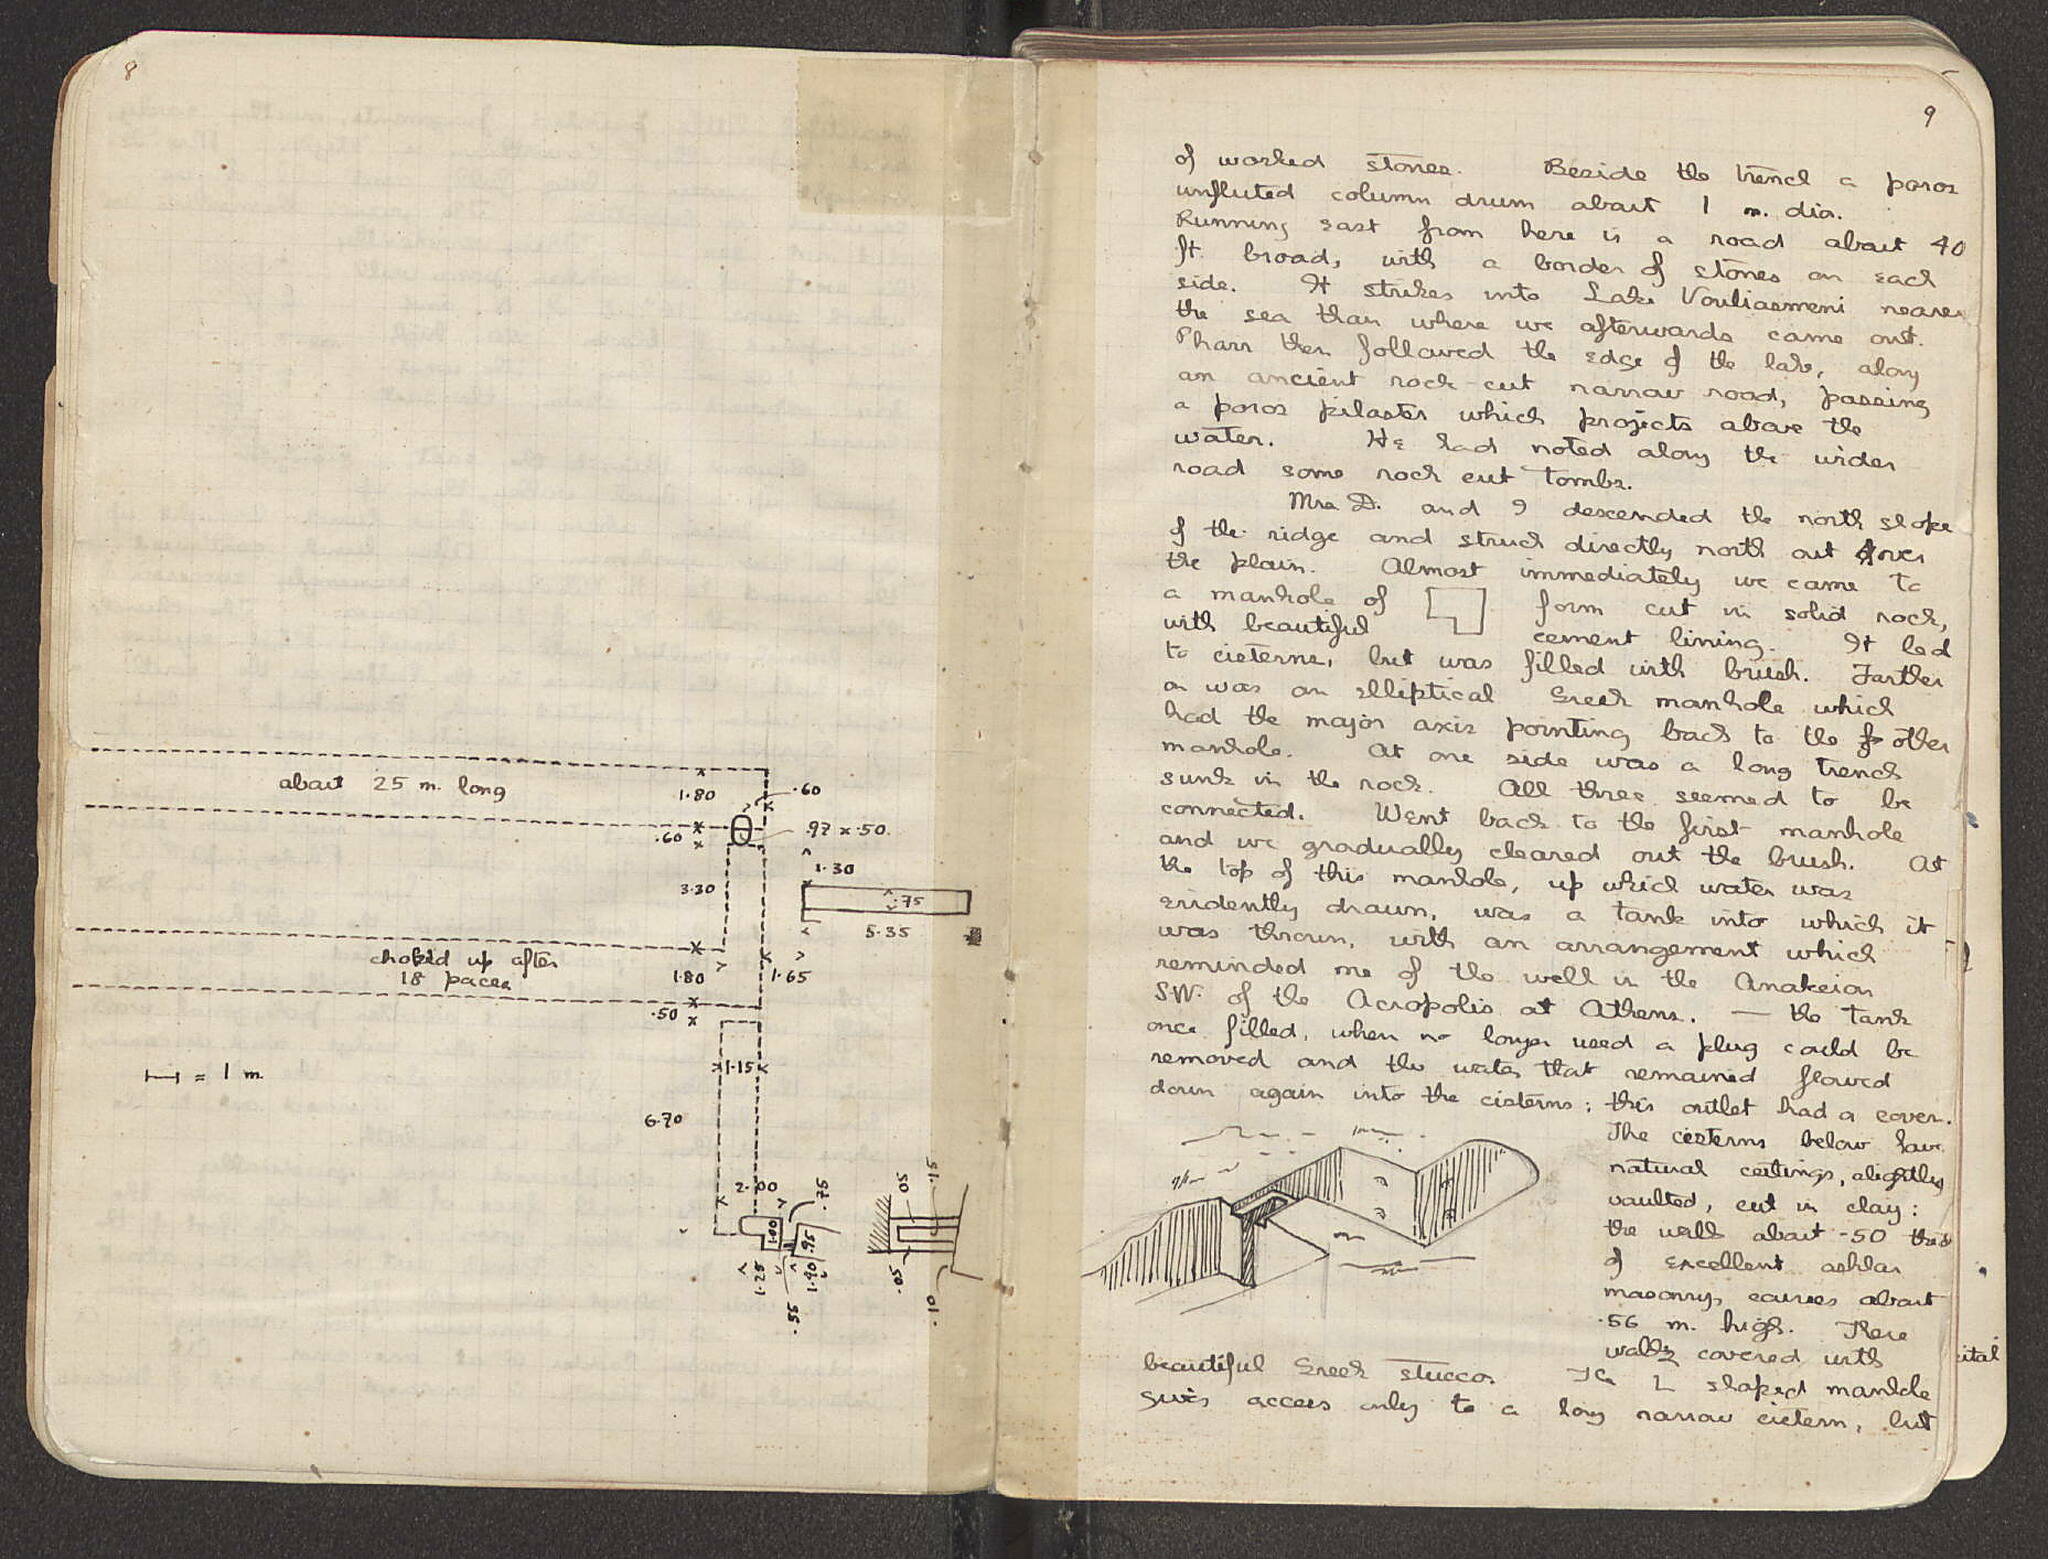 8
about 25 m. long
1.80
.60
.60
.97 x .50.
1.30
3.30
.75
5.35
choked up after
18 paces
1.80
1.65
.50
1.15
= 1 m.
6.70
2.00
.75
1.00
.95
1.25
1.90
.55
.05
.15
.05
.10
9
of worked stones. Beside the trench a poros
unfluted column drum about 1 m. dia.
Running east from here is a road about 40
ft. broad, with a border of stones on each
side. It strikes into Lake Vouliasmeni nearer
the sea than where we afterwards came out.
Pharr then followed the edge of the lake, along
an ancient rock-cut narrow road, passing
a poros pilaster which projects above the
water. He had noted along the wider
road some rock cut tombs.
Mrs D. and I descended the north slope
of the ridge and struck directly north out over
the plain. Almost immediately we came to
a manhole of form cut in solid rock,
with beautiful cement lining. It led
to cisterns, but was filled with brush. Farther
on was an elliptical Greek manhole which
had the major axis pointing back to the other
manhole. At one side was a long trench
sunk in the rock. All three seemed to be
connected. Went back to the first manhole
and we gradually cleared out the brush. At
the top of this manhole, up which water was
evidently drawn, was a tank into which it
was thrown, with an arrangement which
reminded me of the well in the Anakeion
SW. of the Acropolis at Athens. — the tank
once filled, when no longer used a plug could be
removed and the water that remained flowed
down again into the cisterns; this outlet had a cover.
The cisterns below have
natural ceilings, slightly
vaulted, cut in clay:
the walls about .50 thick
of excellent ashlar
masonry, courses about
.56 m. high. These
walls covered with
beautiful Greek stucco. The L shaped manhole
gives access only to a long narrow cistern, but